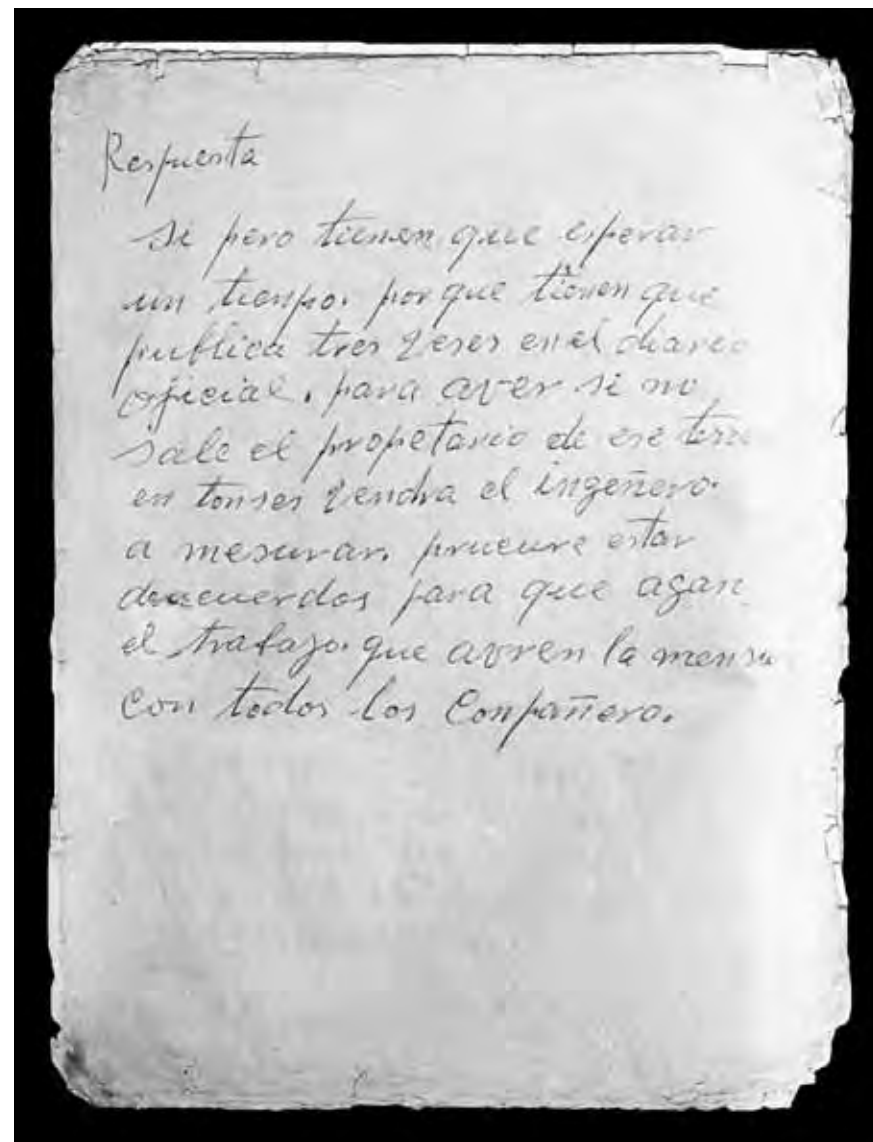 Respuesta
si pero tienen que esperar
un tienpo. porque tienen que
publica tres veses en el diareo
oficial. para aver si no
sale el propetario de ese
en tonses vendra el ingeñero.
a mesurar. prucure estar
deacuerdos para que agan
el trabajo. que avren la mensu
con todos los Conpañero.